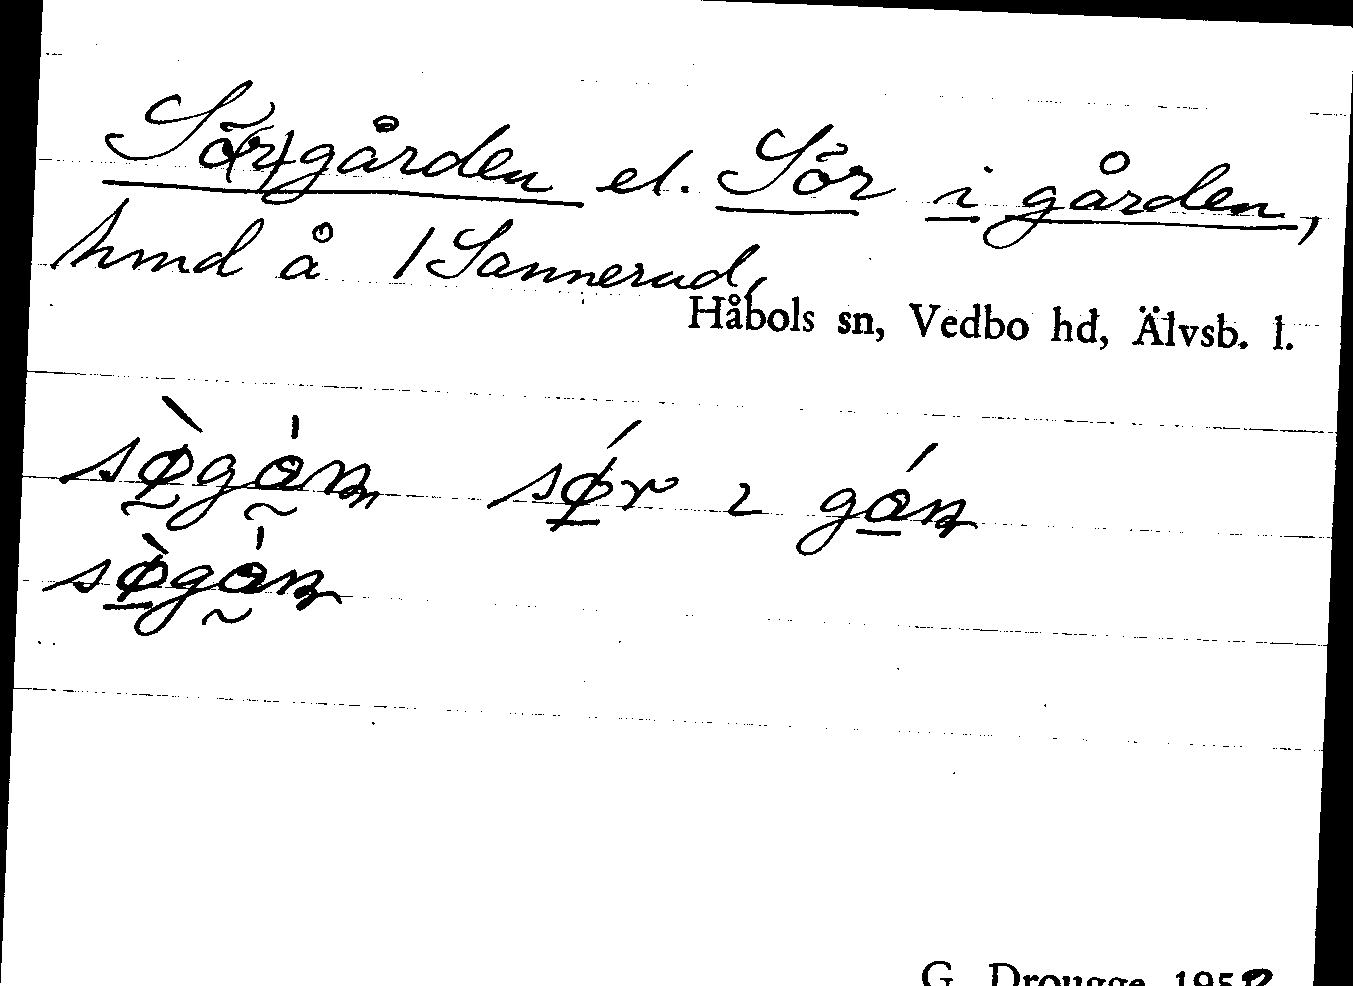 Sö(r)gården el. Sör i gården,
hmd å 1 Sannerud,
Håbols sn, Vedbo hd, Älvsb. l.
sø̀gȧn sǿr ɩ gán
sø̀gȧn
G. Drougge 1952